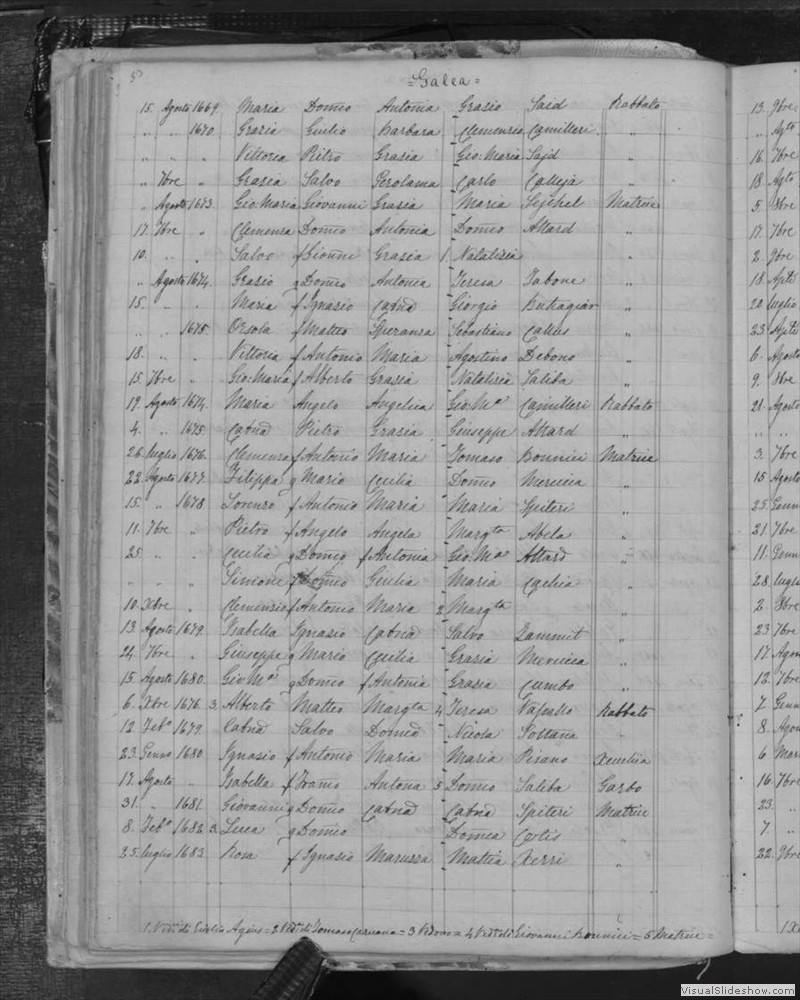 =Galea=
15. Agosto 1669. Maria Domco Antonia Grasio Said Rabbato
" " 1670. Grasia Giulio Barbara Clemensia Camilleri "
" " " Vittoria Pietro Grasia Gio: Maria Sajd "
" 7bre " Grasia Salvo Gerolama Carlo Calleja "
" Agosto 1673. Gio: Maria Giovanni Grasia Maria Matrice
17. 7bre " Clemensa Domco Antonia Domco Attard "
10. " " Salvo f Gionni Grasia 1. Natalisia "
" Agosto 1674. Grasio g Domco Antonia Teresa Tabone "
15. " " Maria f Ignasio Catnd Giorgio Buttagiar "
" " 1675. Orsola f Matteo Speransa Sebastiano Callus "
18. " " Vittoria f Antonio Maria Agostino Debono "
15. 7bre " Gio: Maria f Alberto Grasia Natalisia Saliba "
19. Agosto 1674. Maria Angelo Angelica Gio: Ma Camilleri Rabbato
4. " 1675. Catnd Pietro Grasia Giuseppe Attard "
26. luglio 1676. Clemensa f Antonio Maria Tomaso Bonnici Matrice
22. Agosto 1677. Filippa g Mario Cecilia Domco Mercieca "
15. " 1678 Lorenso f Antonio Maria Maria Spiteri "
11. 7bre " Pietro f Angelo Angela Margta Abela "
25 " " Cecilia g Domco f Antonia Gio: Ma Attard "
" " " Simone f Domco Giulia Maria "
10. Xbre " Clemensio f Antonio Maria 2 Margta "
13. Agosto 1679. Isabella Ignasio Catnd Salvo Zammit "
24. 7bre " Giuseppe g Mario Cecilia Grasia Mercieca "
15 Agosto 1680. Gio: Ma g Domco f Antonia Grasia Cumbo "
6. Xbre 1676. 3. Alberto Matteo Margta 4 Teresa Vassallo Rabbato
12 Febo 1679. Catnd Salvo Domca Nicola "
23. Genno 1680. Ignasio f Antonio Maria Maria Pisano
17. Agosto " Isabella f Antona 5 Domco Saliba Garbo
31. " 1681. Giovanni g Domco Catnd Catnd Spiteri Matrice
8. Febo 1682 3. Luca g Domco Domca "
25. luglio 1683. Rosa f Ignasio Marussa Mattia Xerri "
1. Veda di Agius = 2 Veda di Tomaso Caruana = 3 Vedovo = 4 Veda di Giovanni Bonnici = 5 Matrice =
13. 9bre
" Agto
16. 7bre
18. Agto
5. Xbre
17. 7bre
2. 9bre
18. Aple
20. luglio
23. Aple
6. Agosto
9. Xbre
21. Agosto
" "
3. 7bre
15 Agosto
25. Genn
21. 7bre
11. Genn
28. luglio
2. Xbre
23 7bre
17. Agos
12. 7bre
7. Genn
8. Agos
6 Mar
16. 7bre
23. "
7. "
22. 9bre
VisualSlideshow.com